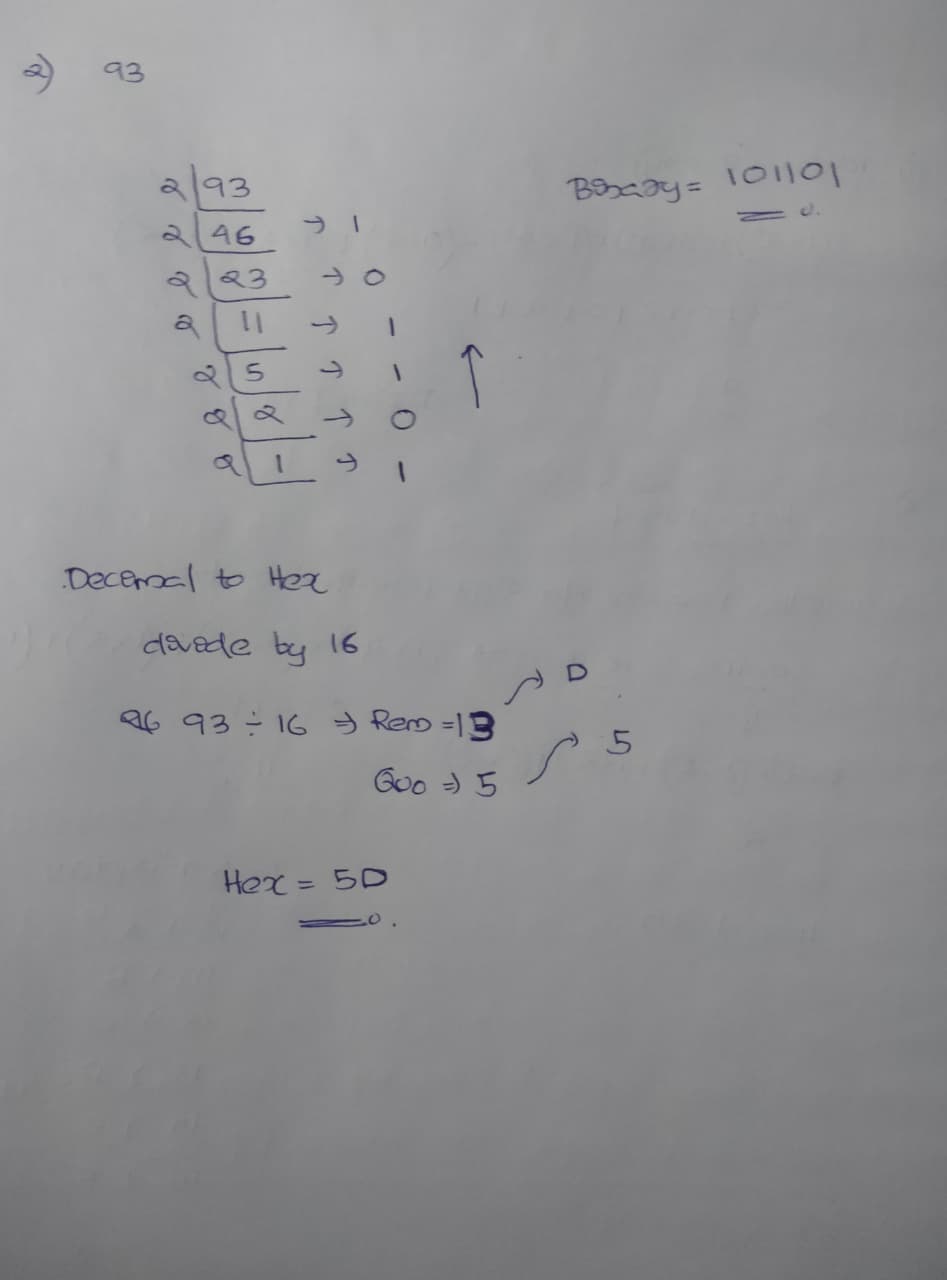 2) 93
2 93
2 46 → 1
2 23 → 0
2 11 → 1
2 5 → 1
2 2 → 0
2 1 → 1
↑
Binary = 101101
Decimal to Hex
divide by 16
93 ÷ 16 ⇒ Rem = 13 → D
Quo ⇒ 5 → 5
Hex = 5D